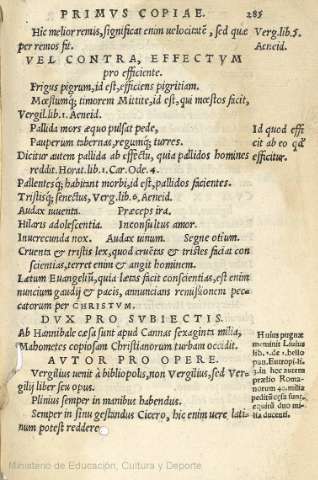 PRIMVS COPIAE. 285
Hic melior remis, significat enim uelocitatē, sed quæ
per remos fit.
Verg. lib. 5.
Aeneid.
VEL CONTRA, EFFECTVM
pro efficiente.
Frigus pigrum, id est, efficiens pigritiam.
Mœstumq; timorem Mittite, id est, qui mœstos facit,
Vergil. lib. 1. Aeneid.
Pallida mors æquo pulsat pede,
Pauperum tabernas, regumq; turres.
Id quod effi
cit ab eo qđ
efficitur.
Dicitur autem pallida ab effectu, quia pallidos homines
reddit. Horat. lib. 1. Car. Ode. 4.
Pallentesq; habitant morbi, id est, pallidos facientes.
Tristisq; senectus, Verg. lib. 6. Aeneid.
Audax iuuenta. Præceps ira.
Hilaris adolescentia. Inconsultus amor.
Inuerecunda nox. Audax uinum. Segne otium.
Cruenta & tristis lex, quod cruētas & tristes faciat con
scientias, terret enim & angit hominem.
Lætum Euangeliū, quia lætas facit conscientias, est enim
nuncium gaudij & pacis, annuncians remissionem pec-
catorum per CHRISTVM.
DVX PRO SVBIECTIS.
Ab Hannibale cæsa sunt apud Cannas sexaginta milia,
Mahometes copiosam Christianorum turbam occidit.
Huius pugnæ
meminit Liuius
lib. 2. de 2. bello
pun. Eutropi. li.
3. In hoc autem
prælio Roma-
norum 40. milia
peditū cæsa sunt,
equitū duo mi-
lia ducenti.
AVTOR PRO OPERE.
Vergilius uenit à bibliopolis, non Vergilius, sed Ver-
gilij liber seu opus.
Plinius semper in manibus habendus.
Semper in sinu gestandus Cicero, hic enim uere lati-
num potest reddere.
Ministerio de Educación, Cultura y Deporte